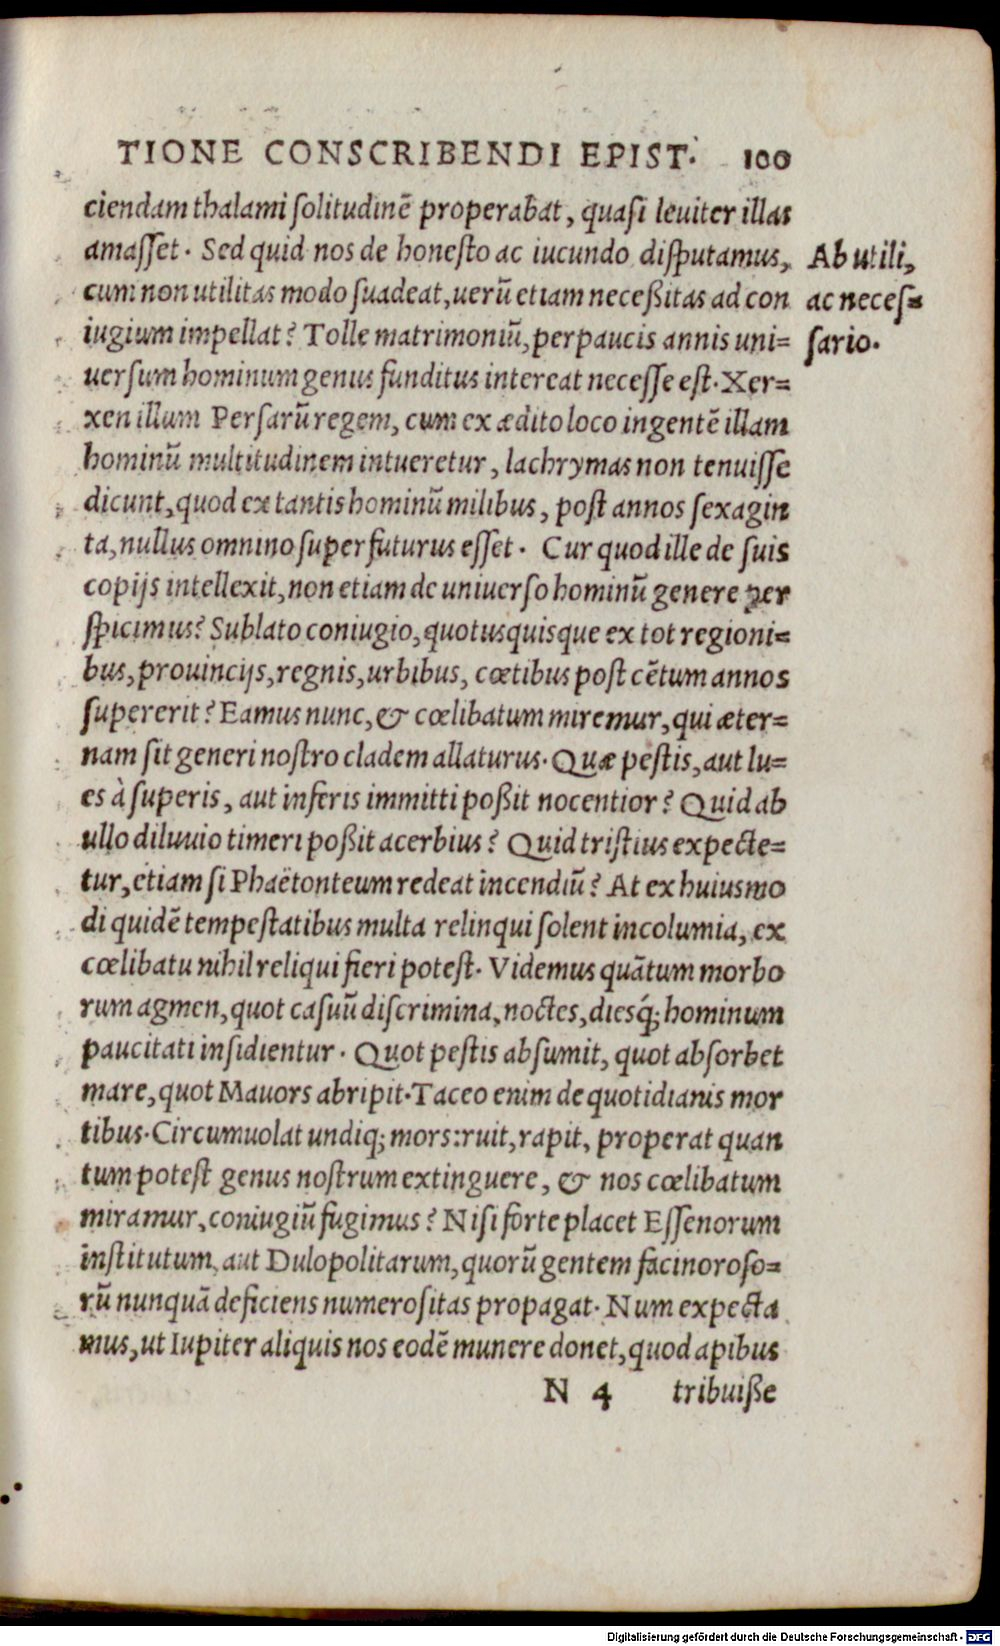 TIONE CONSCRIBENDI EPIST. 100
ciendam thalami ſolitudinē properabat, quaſi leuiter illas
amaſſet. Sed quid nos de honeſto ac iucundo diſputamus,
cum non utilitas modo ſuadeat, uerū etiam neceßitas ad con
iugium impellat? Tolle matrimoniū, perpaucis annis uni=
uerſum hominum genus funditus intereat neceſſe eſt. Xer=
xen illum Perſarū regem, cum ex ædito loco ingentē illam
hominū multitudinem intueretur, lachrymas non tenuiſſe
dicunt, quod ex tantis hominū milibus, poſt annos ſexagin
ta, nullus omnino ſuperfuturus eſſet. Cur quod ille de ſuis
copijs intellexit, non etiam de uniuerſo hominū genere per
ſpicimus? Sublato coniugio, quotusquisque ex tot regioni=
bus, prouincijs, regnis, urbibus, cœtibus poſt cētum annos
ſupererit? Eamus nunc, & cœlibatum miremur, qui æter=
nam ſit generi noſtro cladem allaturus. Quæ peſtis, aut lu=
es à ſuperis, aut inferis immitti poßit nocentior? Quid ab
ullo diluuio timeri poßit acerbius? Quid triſtius expecte=
tur, etiam ſi Phaëtonteum redeat incendiū? At ex huiusmo
di quidē tempeſtatibus multa relinqui ſolent incolumia, ex
cœlibatu nihil reliqui fieri poteſt. Videmus quātum morbo
rum agmen, quot caſuū diſcrimina, noctes, diesq́; hominum
paucitati inſidientur. Quot peſtis abſumit, quot abſorbet
mare, quot Mauors abripit. Taceo enim de quotidianis mor
tibus. Circumuolat undiq; mors: ruit, rapit, properat quan
tum poteſt genus noſtrum extinguere, & nos cœlibatum
miramur, coniugiū fugimus? Niſi forte placet Eſſenorum
inſtitutum, aut Dulopolitarum, quorū gentem facinoroſo=
rū nunquā deficiens numeroſitas propagat. Num expecta
mus, ut Iupiter aliquis nos eodē munere donet, quod apibus
N 4 tribuiße
Ab utili,
ac neceſ=
ſario.
Digitalisierung gefördert durch die Deutsche Forschungsgemeinschaft - DFG